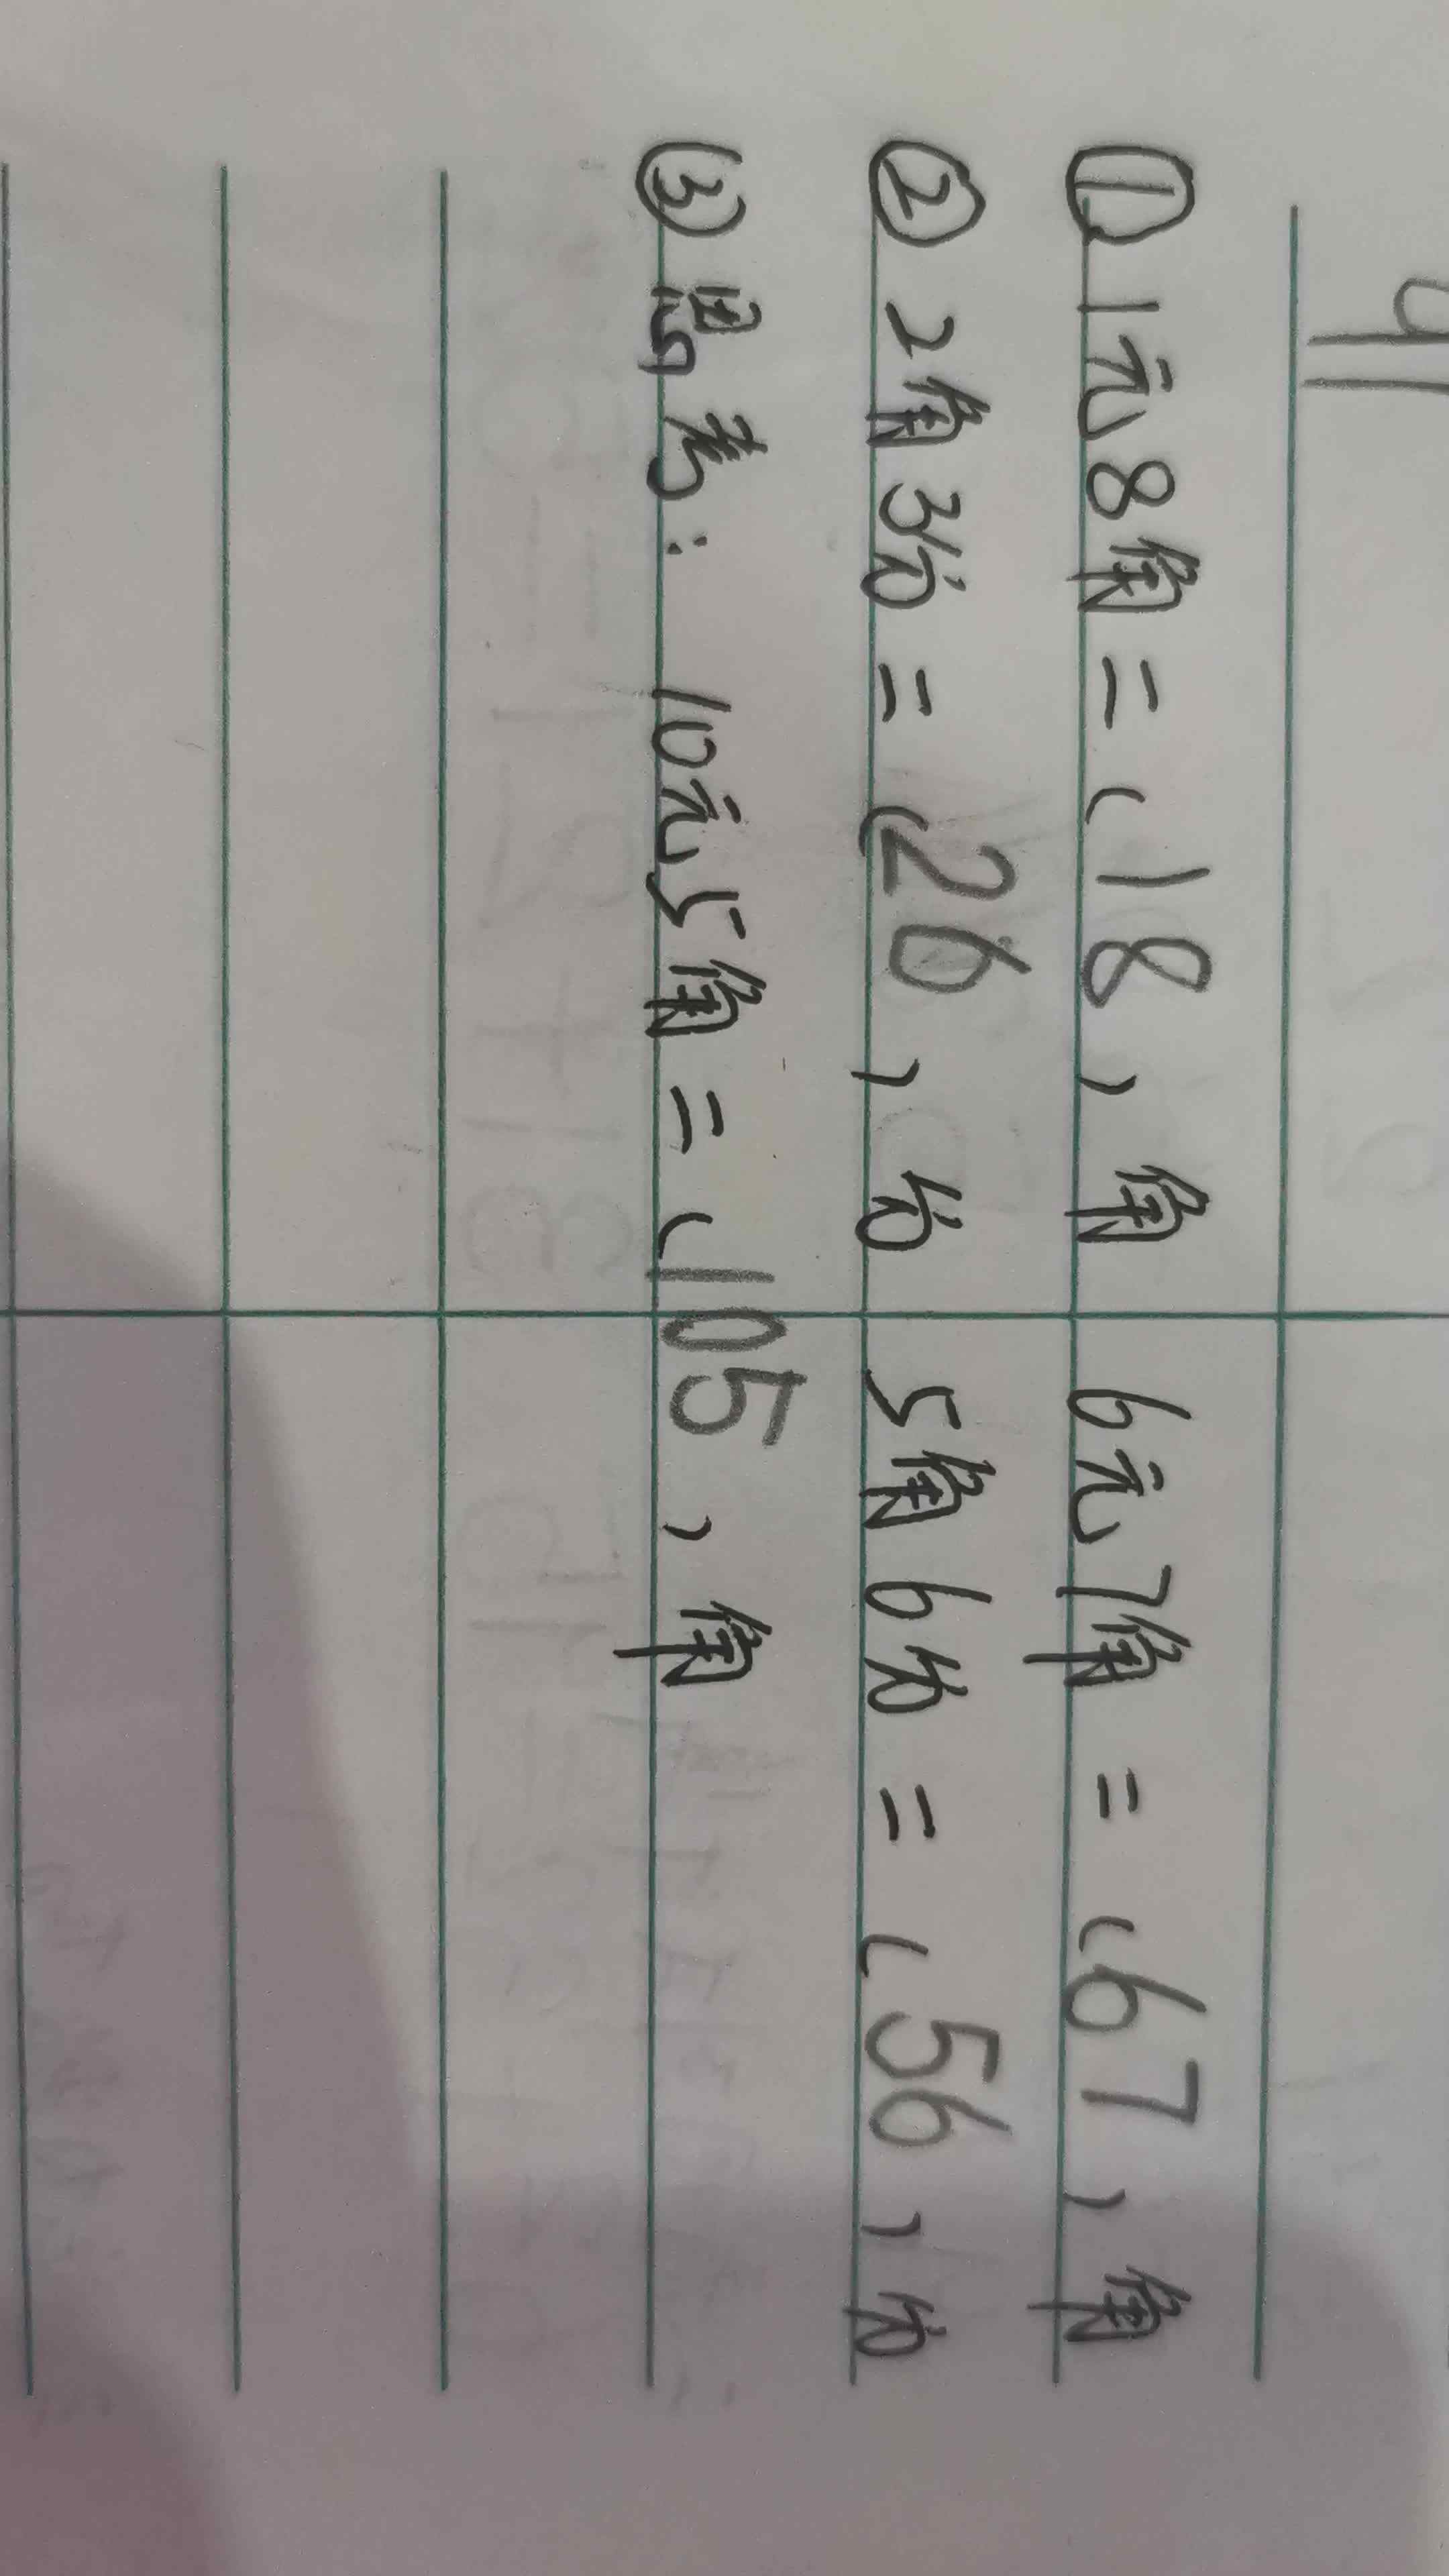 ① 1元8角=(18)角 6元7角=(67)角
② 2角3分=(26)分 5角6分=(56)分
③ 思考: 10元5角=(105)角